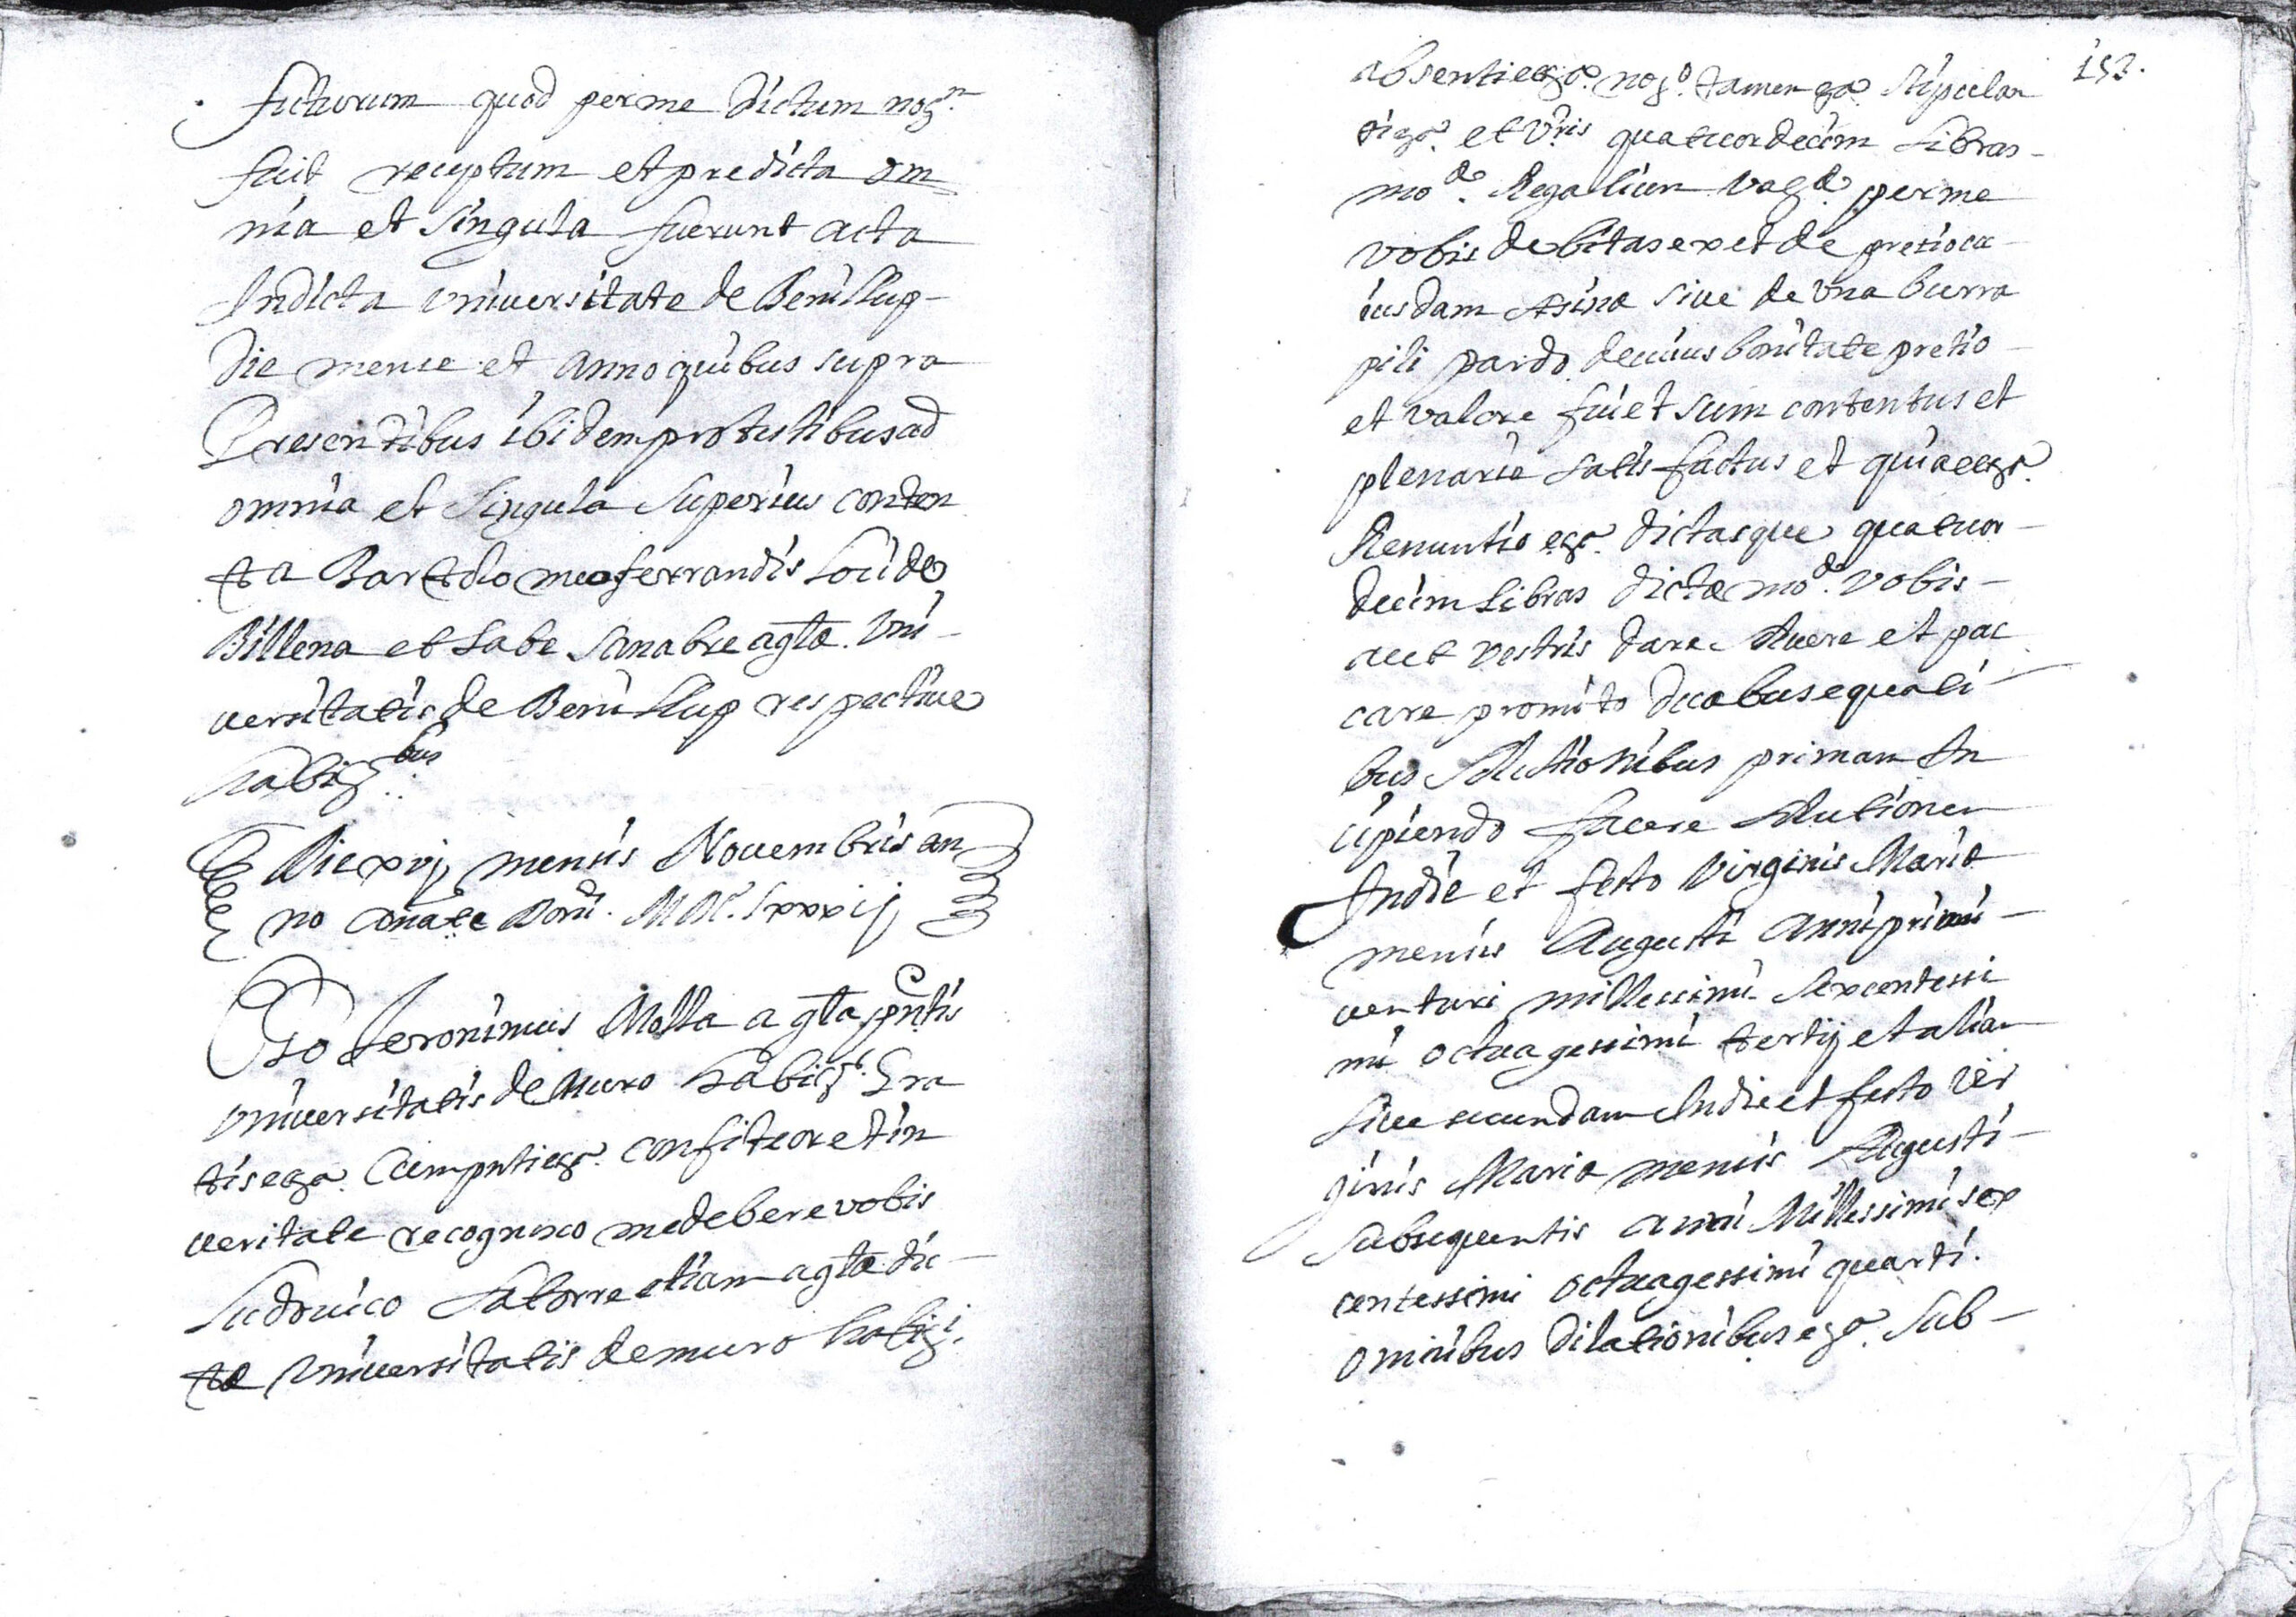 futurum quod per me dictum nogm
fuit receptum et predicta om
nia et singula fuerunt acta
In dicta universitate de Benillup
die mense et anno quibus supra
Presentibus ibidem pro testibus ad
omnia et singula superius conten
ta Barteolomeo ferrandis loci de
Billena et sanabre agta. Uni
uersitatis de Benillup respective
habigbus.
Die xvij mensis Novembris an
no a nate Domi. MDC. Lxxxij
Ego Jeronimus Molla agta pntis
universitatis de Muro habigr. Gra
tis ega. Cum pnti ega. confiteor et in
ueritate recognosco me debere vobis
Ludovico Satorre etiam agta dic
te universitatis de muro habigi.
153.
absenti ega. nogo. tamen ga. stipulan
ti ga. et vris quatuordecim Libras
mode. Regalium Valede. per me
vobis debitas ex et de pretio cu
iusdam Asine sive de una burra
pili pardo de cuius bonitate pretio
et valore fui et sum contentus et
plenarie satisfactus et quia ega.
Renuntio ega. dictasque quatuor
decim Libras dicte mode. vobis
aut vestris dare solvere et pac
care promito duabus equali
bus solutionibus primam In
cipiendo facere solutionem
In die et festo Virginis Maria
mensis Augusti anni primi
venturi millessimi sexcentessi
mi octuagessimi tertij et aliam
sive secundam In die et festo Vir
ginis Maria mensis Augusti
subsequentis anni Millessimi sex
centessimi octuagessimi quarti.
Omnibus dilationibus ega. sub